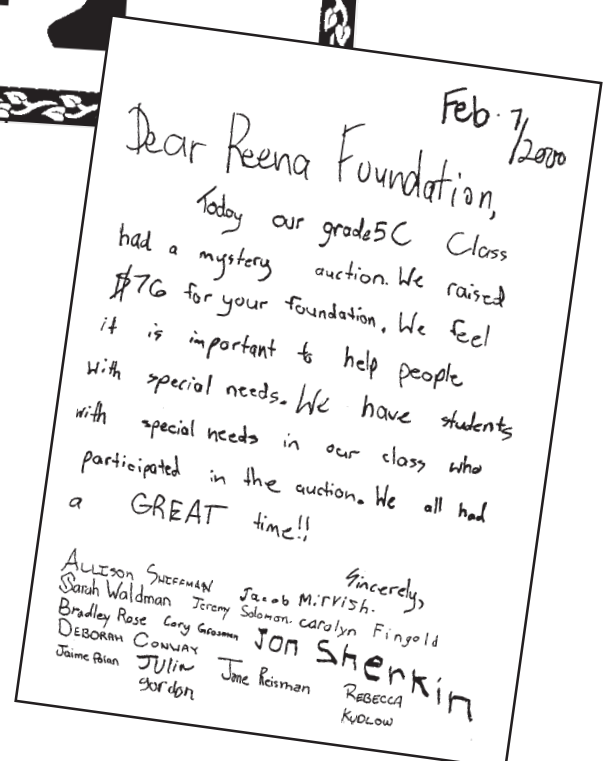 Feb. 7/2000
Dear Reena Foundation,
Today our grade5C Class
had a mystery auction. We raised
$76 for your foundation. We feel
it is important to help people
with special needs. We have students
with special needs in our class who
participated in the auction. We all had
a GREAT time!!
Sincerely,
ALLISON SHIFFMAN Jacob Mirvish.
Sarah Waldman Jeremy Solomon. carolyn Fingold
Bradley Rose Cory Grosman Jon Sherkin
DEBORAH CONWAY
Jaime Julia gordon Jane Reisman REBECCA KUDLOW